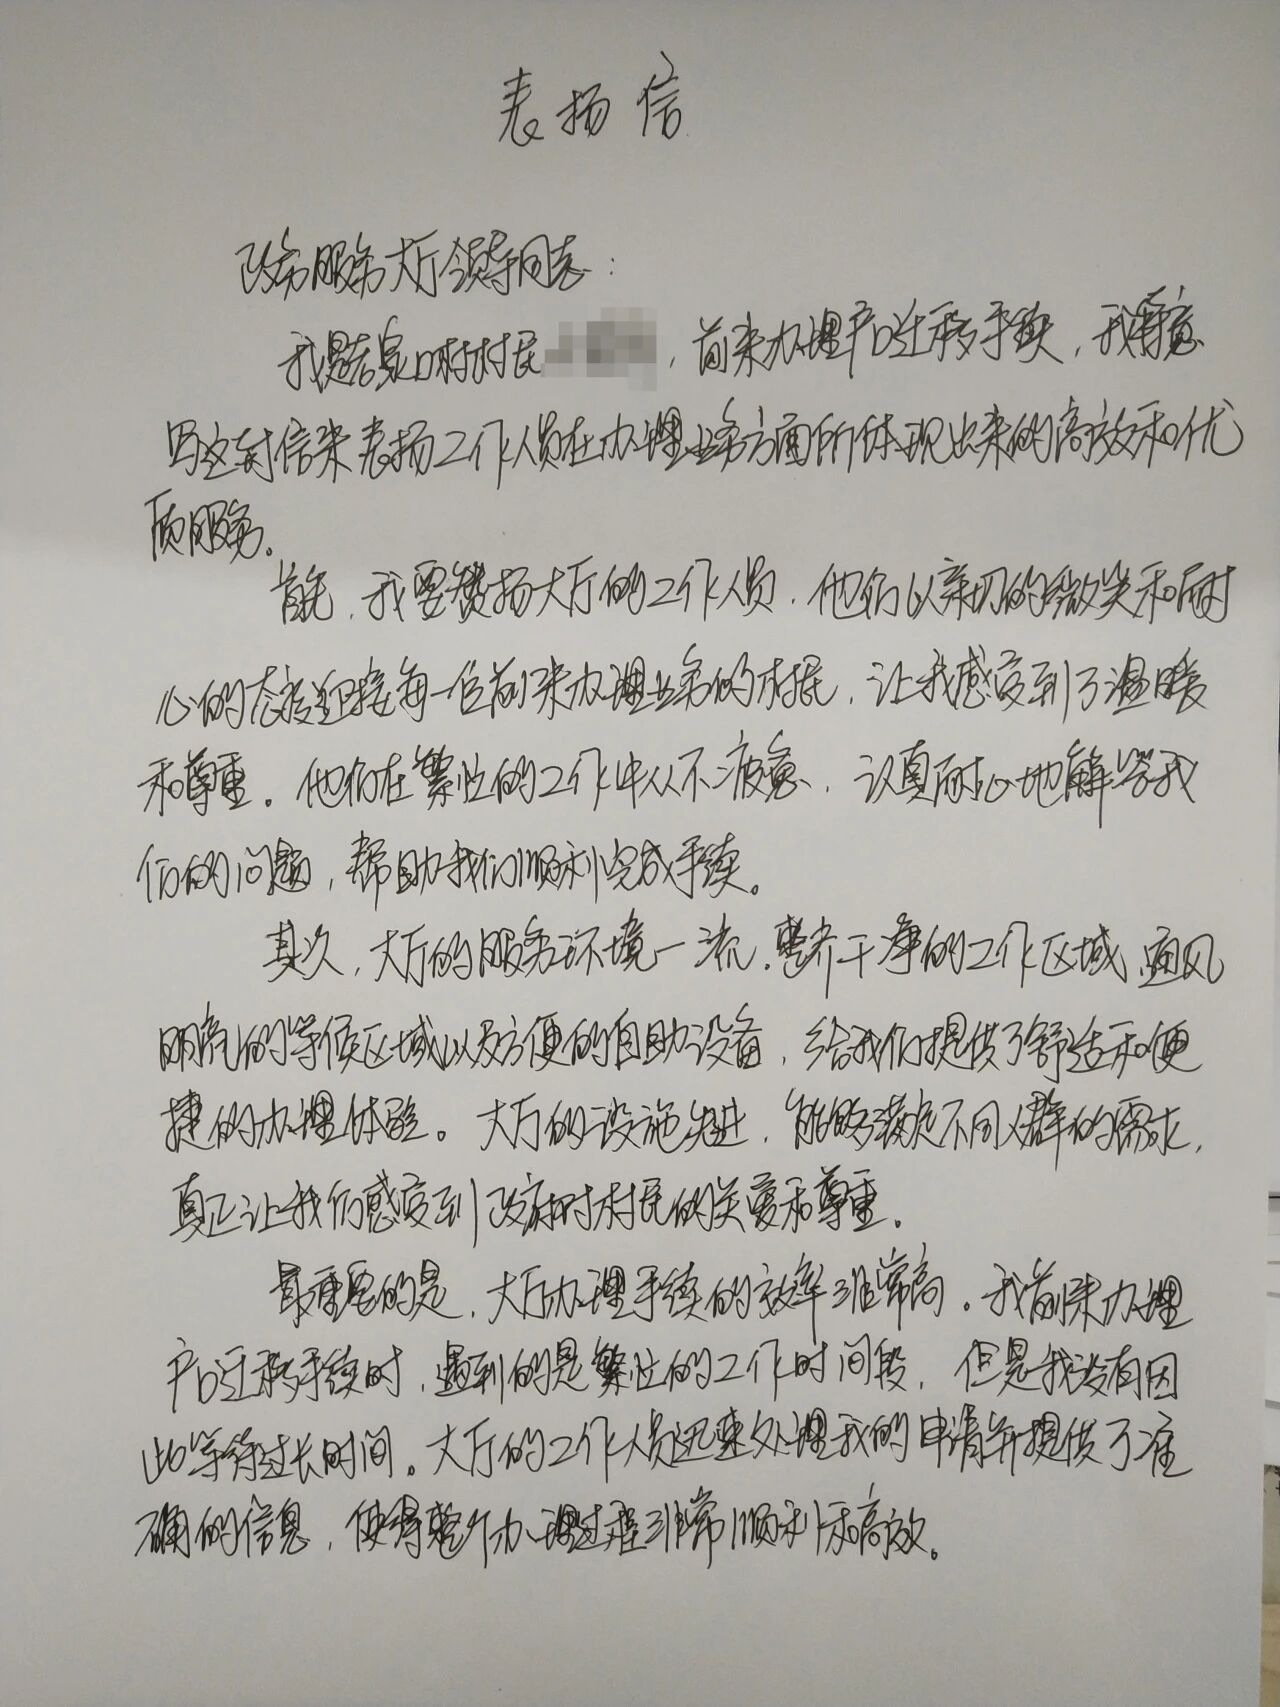 表扬信
政务服务大厅领导同志：
我是 泉口村村民 ，前来办理户口迁移手续，我 意
写这封信来表扬工作人员在办理业务方面所体现出来的高效和优
质服务。
首先，我要赞扬大厅的工作人员，他们以亲切的微笑和耐
心的态度迎接每一位前来办理业务的村民，让我感受到了温暖
和尊重。他们在繁忙的工作中从不疲惫，认真耐心地解答我
们的问题，帮助我们顺利完成手续。
其次，大厅的服务环境一流。整齐干净的工作区域、通风
明亮的等候区域以及方便的自助设备，给我们提供了舒适和便
捷的办理体验。大厅的设施先进，能够满足不同人群的需求，
真正让我们感受到政府对村民的关爱和尊重。
最重要的是，大厅办理手续的效率非常高。我前来办理
户口迁移手续时，遇到的是繁忙的工作时间段，但是我没有因
此等待过长时间。大厅的工作人员迅速处理我的申请并提供了准
确的信息，使得整个办理过程非常顺利和高效。